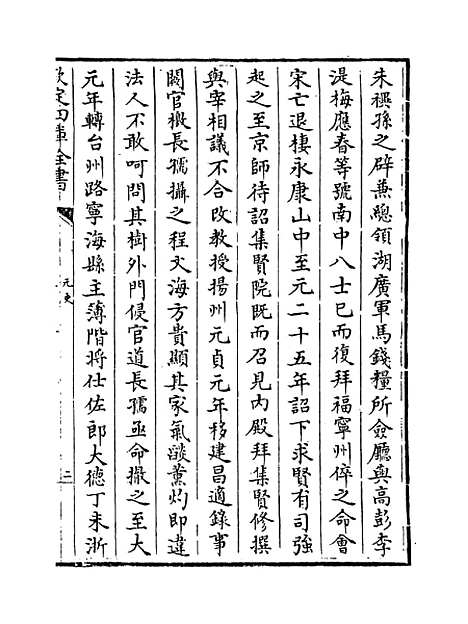 朱禩孫之辟兼緫領湖廣軍馬錢糧所僉廳與高彭李
湜梅應春等號南中八士已而復拜福寧州倅之命會
宋亡退棲永康山中至元二十五年詔下求賢有司強
起之至京師待詔集賢院既而召見内殿拜集賢修撰
與宰相議不合改教授揚州元貞元年移建昌適錄事
闕官檄長孺攝之程文海方貴顯其家氣燄薰灼即違
法人不敢呵問其樹外門侵官道長孺亟命撤之至大
元年轉台州路寧海縣主簿階將仕佐郎大德丁未浙
欽定四庫全書
元史
二